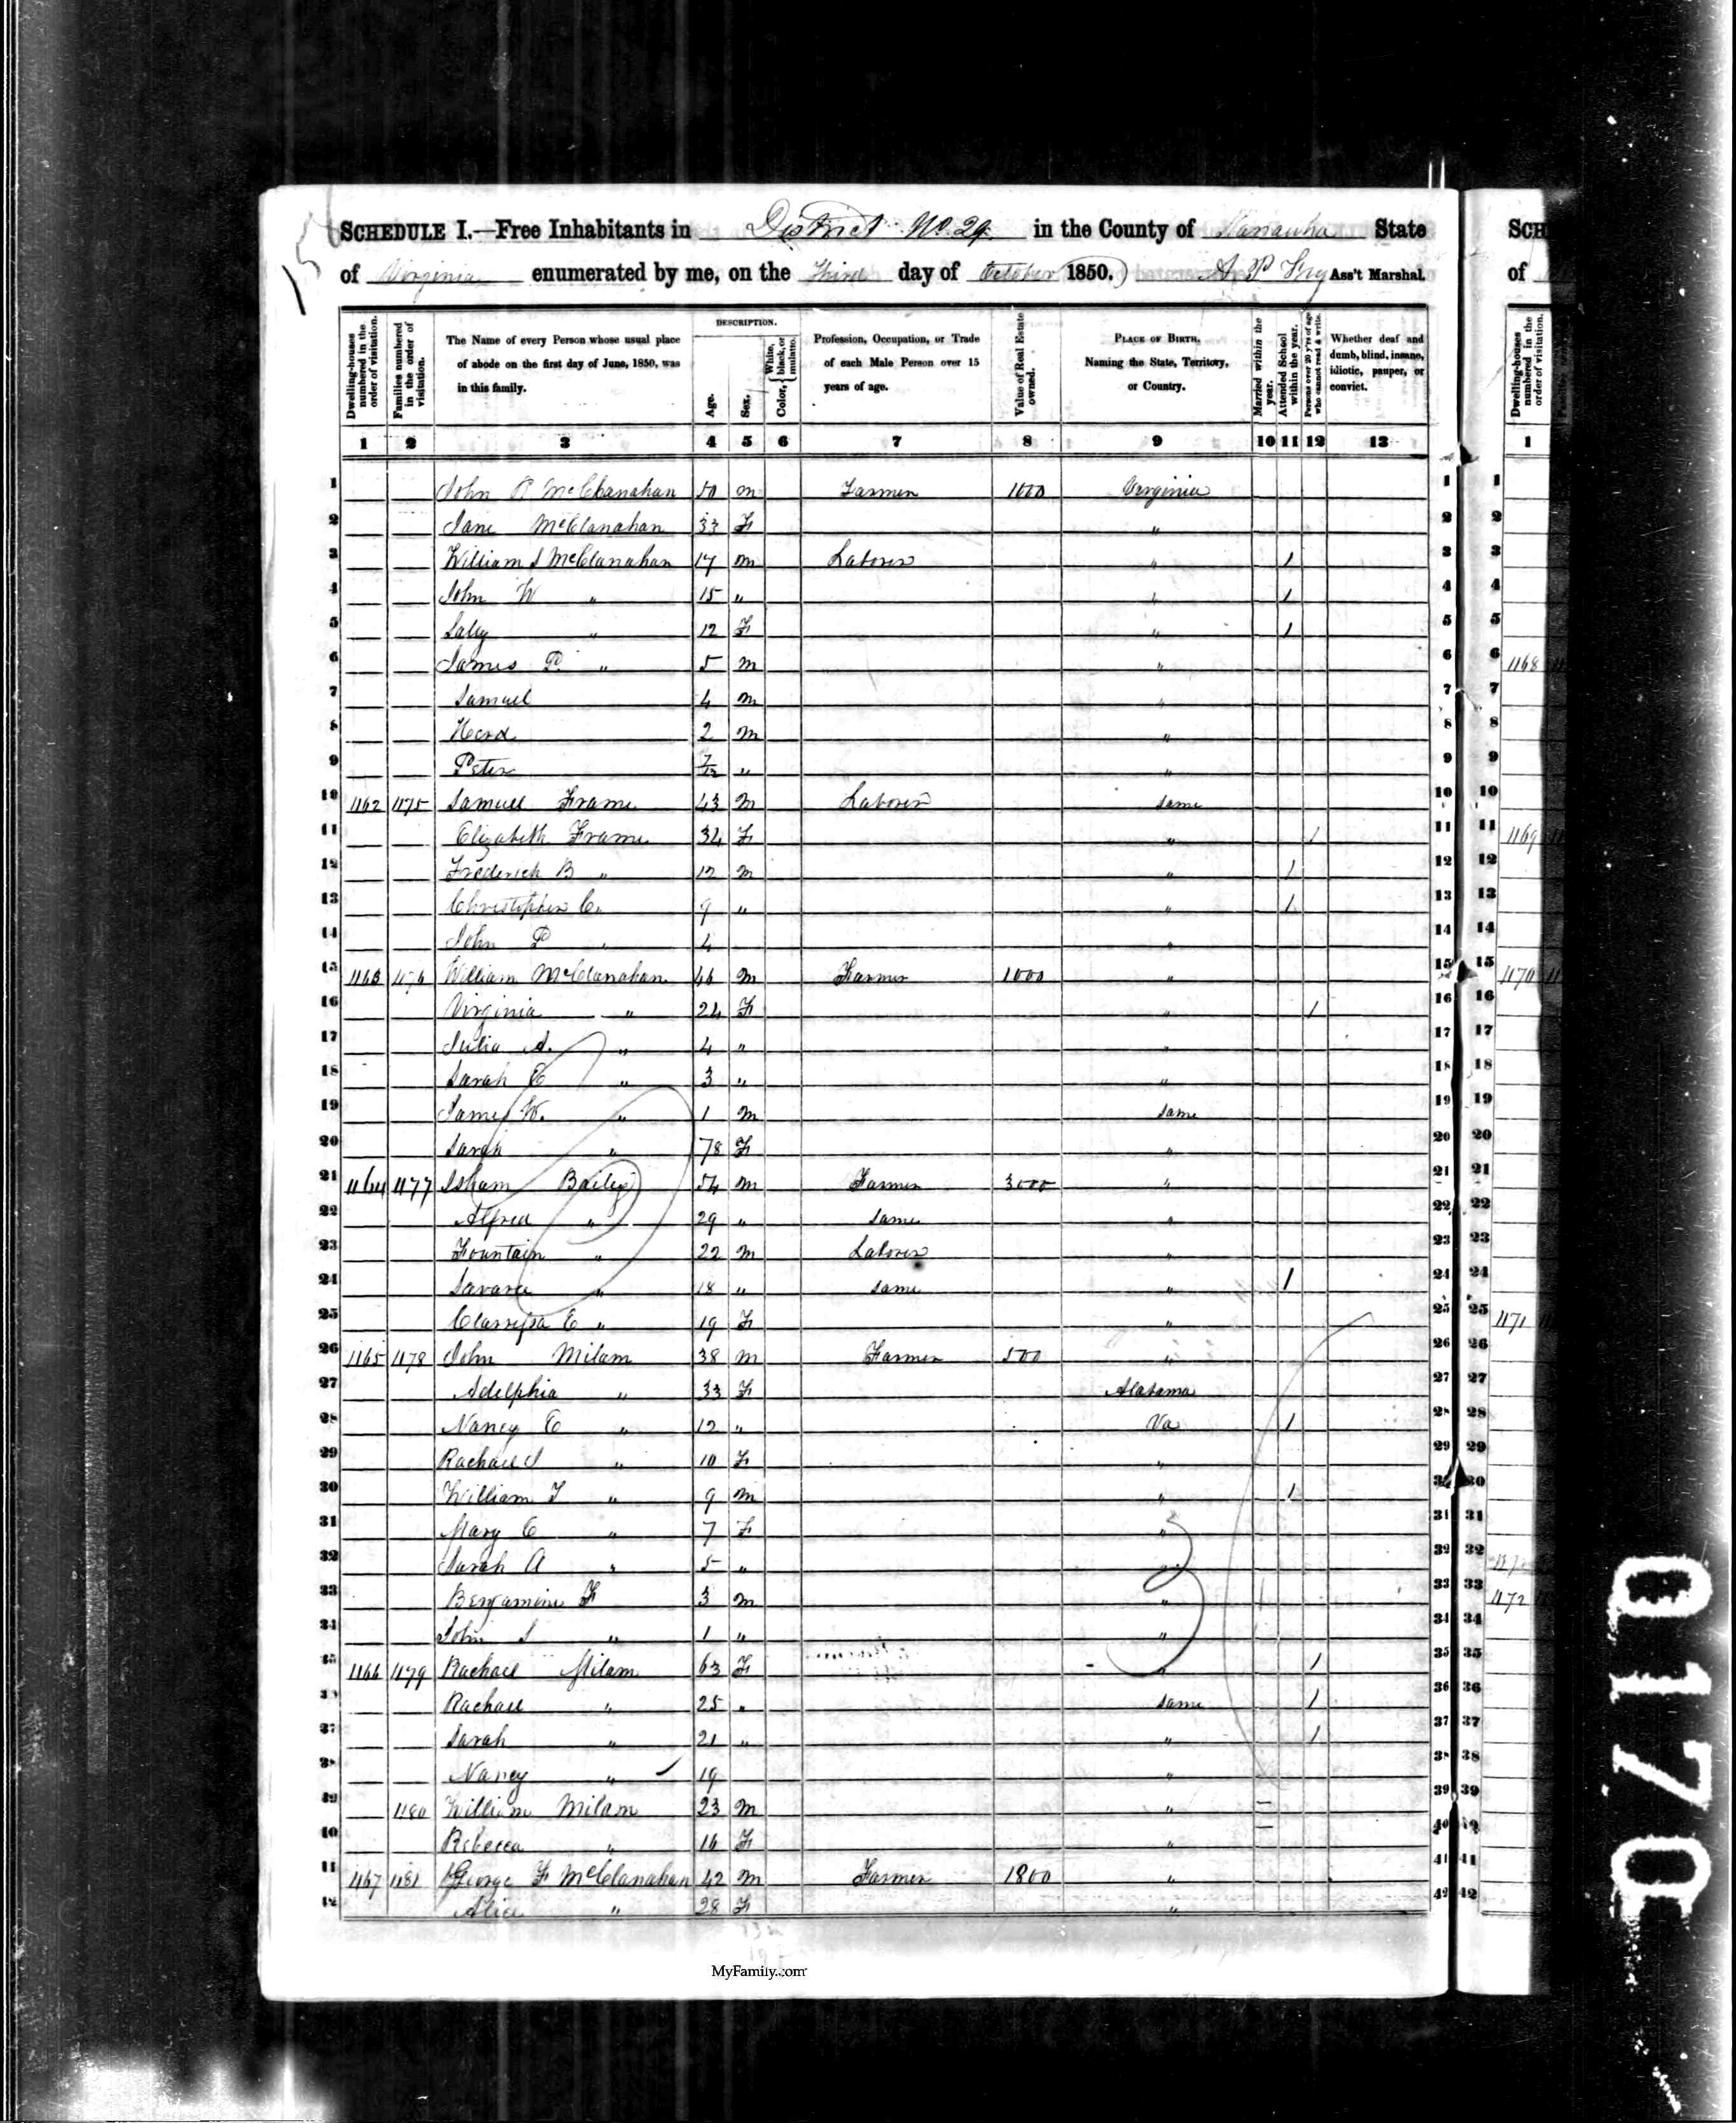 SCHEDULE I.—Free Inhabitants in District No. 29. in the County of Kanawha State
of Virginia enumerated by me, on the Third day of October 1850. A P Fry Ass't Marshal.
Dwelling-houses numbered in the order of visitation. Families numbered in the order of visitation. The Name of every Person whose usual place of abode on the first day of June, 1850, was in this family. DESCRIPTION. Age. Sex. Color, { White, black, or mulatto. Profession, Occupation, or Trade of each Male Person over 15 years of age. Value of Real Estate owned. PLACE OF BIRTH, Naming the State, Territory, or Country. Married within the year. Attended School within the year. Persons over 20 y'rs of age who cannot read & write. Whether deaf and dumb, blind, insane, idiotic, pauper, or convict.
1 2 3 4 5 6 7 8 9 10 11 12 13
1 John R McClanahan 50 m Farmer 1000 Virginia 1
2 Jane McClanahan 33 F " 2
3 William S McClanahan 17 m Laborer " 1 3
4 John W " 15 " " 1 4
5 Sally " 12 F " 1 5
6 James P. " 5 m " 6
7 Samuel 4 m " 7
8 2 m " 8
9 Peter 7/12 " " 9
10 1162 1175 Samuel Frame 43 M Laborer same 10
11 Elizabeth Frame 34 F " 1 11
12 Frederick B " 12 m " 1 12
13 Christopher C. 9 " " 1 13
14 John P " 4 " 14
15 1163 1176 William McClanahan 46 m Farmer 1000 " 15
16 Virginia " 24 F " 1 16
17 Julia A. " 4 " " 17
18 Sarah E " 3 " " 18
19 James W. " 1 m same 19
20 Sarah " 78 F " 20
21 1164 1177 Isham Bailey 54 m Farmer 3000 " 21
22 Alfred " 29 " same " 22
23 Fountain " 22 m Laborer " 23
24 " 18 " same " 1 24
25 Clarrissa E " 19 F " 25
26 1165 1178 John Milam 38 m Farmer 500 " 26
27 Adelphia " 33 F Alabama 27
28 Nancy E " 12 " Va 1 28
29 Rachael S " 10 F " 29
30 William T " 9 m " 1 30
31 Mary E " 7 F " 31
32 Sarah A " 5 " " 32
33 Benjamine F 3 m " 33
34 John S " 1 " " 34
35 1166 1179 Rachael Milam 63 F " 1 35
36 Rachael " 25 " same 1 36
37 Sarah " 21 " " 1 37
38 Nancy " 19 " 38
39 1180 William Milam 23 m " 39
40 Rebecca " 16 F " 40
41 1167 1181 George F McClanahan 42 m Farmer 1800 " 41
42 Alice " 28 F " 42
MyFamily.com
SCH
of
Dwelling-houses numbered in the order of visitation.
1
1168
1169
1170
1171
1172
0170